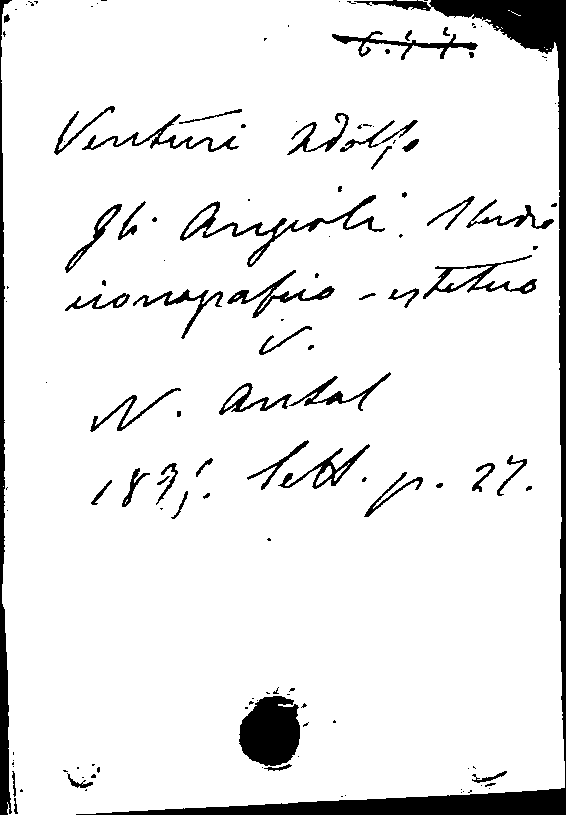 6.44.
Venturi Adolfo
Gli Angioli. Studio
iconografico - estetico
v.
N. Antol
1875. Sett. p. 27.